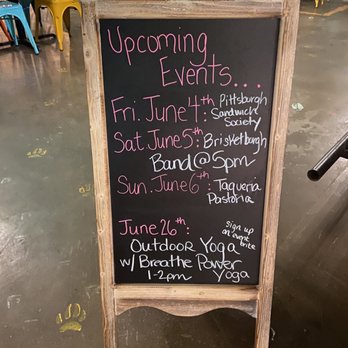 Upcoming
Events...
Fri. June 4th Pittsburgh
Sandwich
Society
Sat. June 5th: Brisketburgh
Band @ 5pm
Sun. June 6th: Taqueria
Pastoria
June 26th: sign up
on event
brite
Outdoor Yoga
w/ Breathe Power
1-2pm Yoga